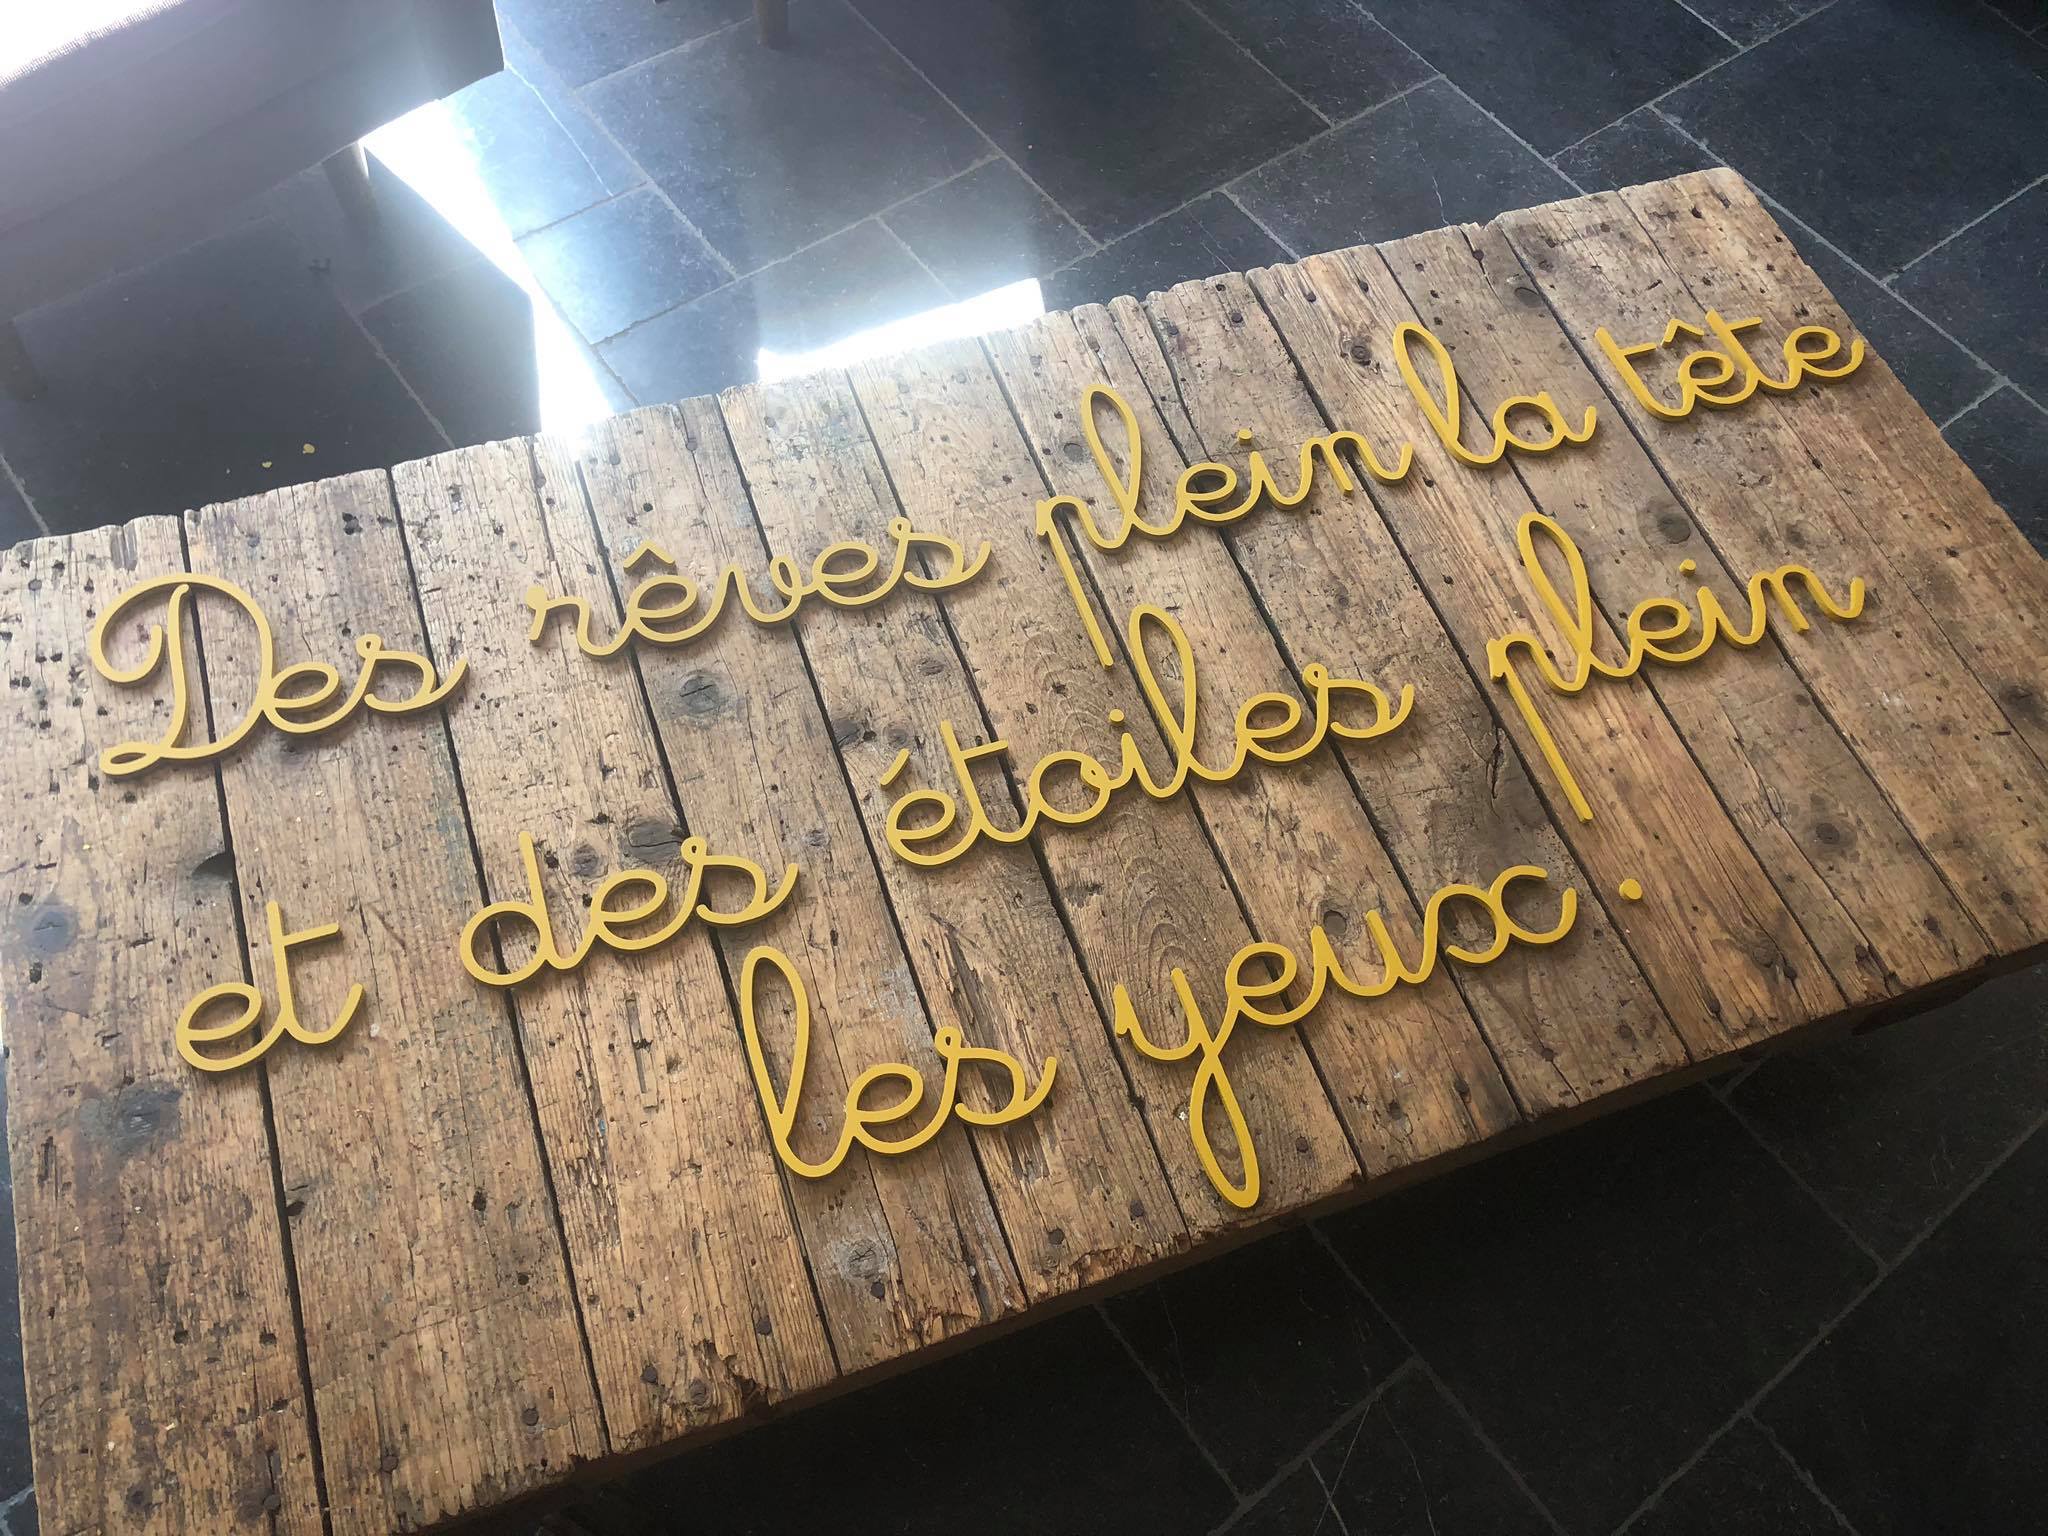 Des rêves plein la tête
et des étoiles plein
les yeux.